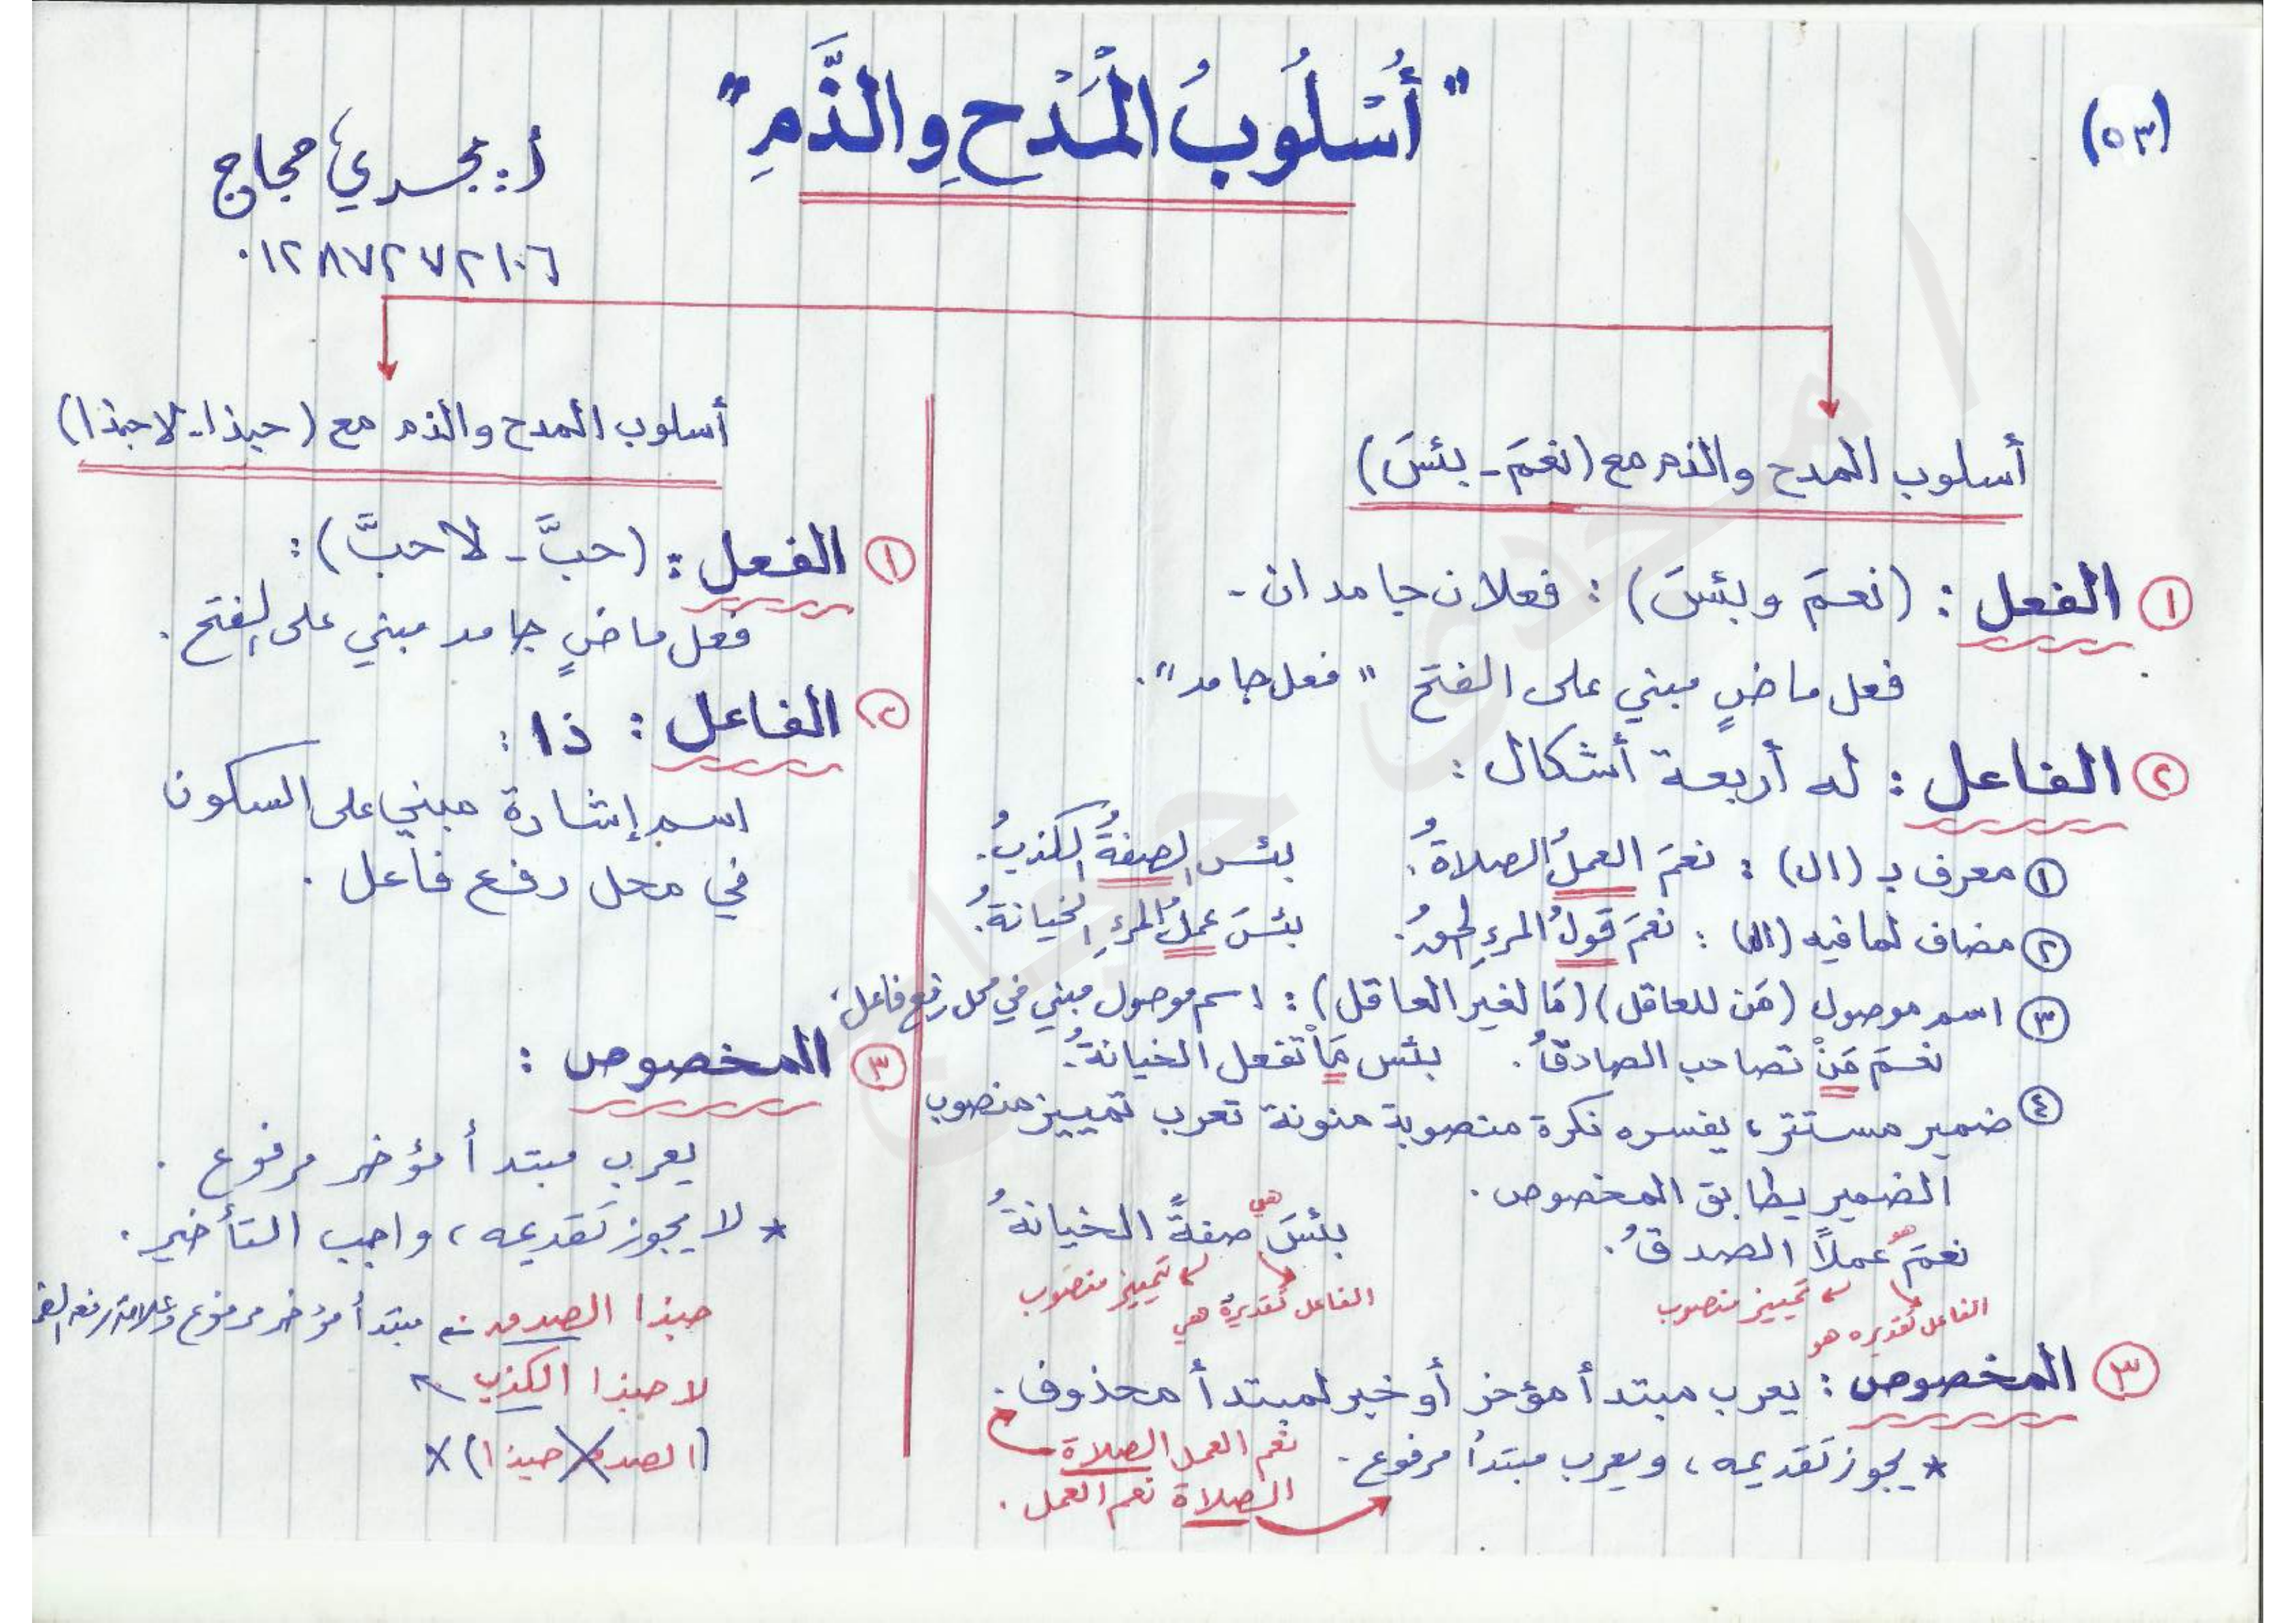 (٥٣)
"أُسْلُوبُ الْمَدْحِ والذَّمِ"
أ: مجدي حجاج
٠١٢٨٧٢٧٢١٠٦
أسلوب المدح والذم مع (نعمَ - بئسَ)
① الفعل: (نعمَ وبئسَ): فعلان جامدان.
فعل ماضٍ مبني على الفتح "فعل جامد".
② الفاعل: له أربعة أشكال:
① معرف بـ (ال): نعمَ العملُ الصلاةُ. بئس الصفةُ الكذبُ.
② مضاف لما فيه (ال): نعمَ قولُ المرءِ الحقُ. بئسَ عملُ المرءِ الخيانةُ.
③ اسم موصول (مَن للعاقل) (مَا لغير العاقل): اسم موصول مبني في محل رفع فاعل.
نعمَ مَنْ تصاحب الصادقُ. بئس مَا تفعل الخيانةُ.
④ ضمير مستتر، يفسره نكرة منصوبة منونة تعرب تمييز منصوب
الضمير يطابق المخصوص.
هو هي
نعمَ عملاً الصدقُ. بئسَ صفةً الخيانةُ
تمييز منصوب تمييز منصوب
الفاعل تقديره هو الفاعل تقديرة هي
③ المخصوص: يعرب مبتدأ مؤخر أو خبر لمبتدأ محذوف.
نعم العمل الصلاة
* يجوز تقديمه، ويعرب مبتدأ مرفوع.
الصلاة نعم العمل.
أسلوب المدح والذم مع (حبذا - لا حبذا)
① الفعل: (حبَّ - لا حبَّ):
فعل ماضٍ جامد مبني على الفتح.
② الفاعل: ذا:
اسم إشارة مبني على السكون
في محل رفع فاعل.
③ المخصوص:
يعرب مبتدأ مؤخر مرفوع.
* لا يجوز تقديمه، واجب التأخير.
حبذا الصدق مبتدأ مؤخر مرفوع وعلامة رفعه
لا حبذا الكذب
(الصدق حبذا) X